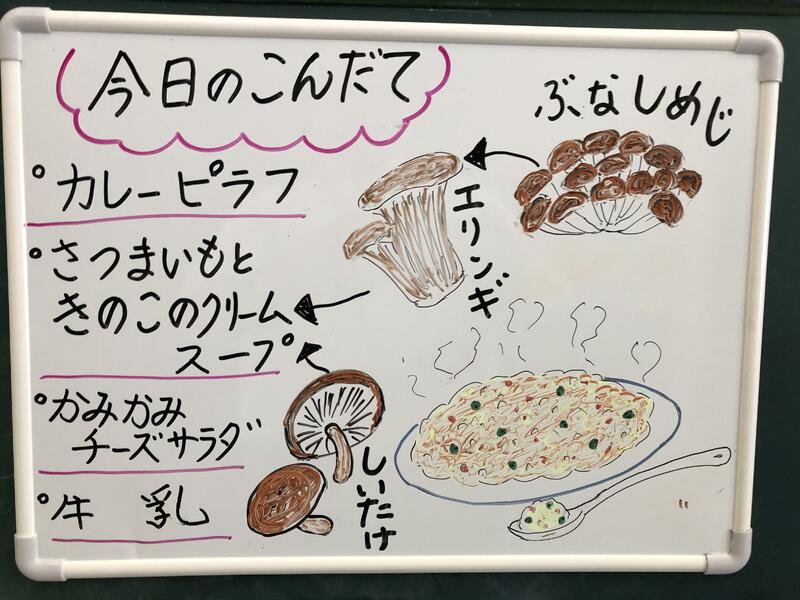 今日のこんだて
ぶなしめじ
エリンギ
° カレーピラフ
° さつまいもと
きのこのクリーム
スープ
° かみかみ
チーズサラダ
しいたけ
° 牛乳